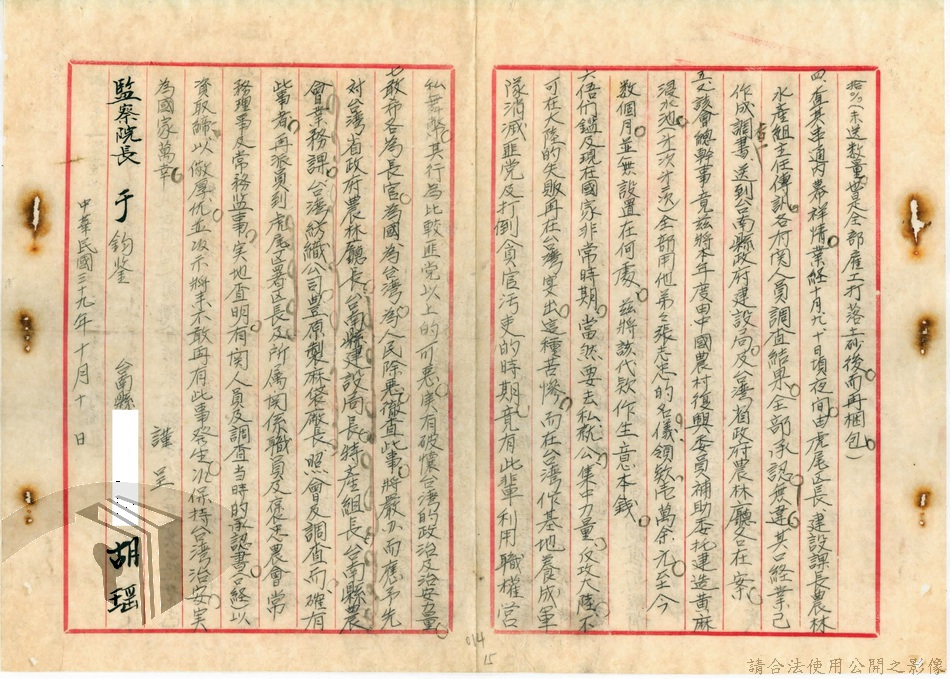 拾%（未送数量曾是全部雇工打落土砂後而再梱包）
四、查其串通內幕祥情業経十月九、十日頃夜间由虎尾区長、建設課長農林
水產組主任傳訊各有関人員調查結果全部承認無違其口経業已
作成調書送到台南縣政府建設局及台灣省政府農林廳各在案
五、該會總幹事竟茲將本年度由中國農村復興委員補助委托建造黃麻
浸水池（才次才次）全部用他弟々張志忠的名儀領款 萬余元至今
数個月並無設置在何處、茲將該代欵作生意本錢
六、悟们鑑及現在國家非常時期、當然要去私就公集中力量、反攻大陸、不
可在大陸的失敗再在台灣実出這種苦慘、而在台灣作基地養成軍
隊消滅匪党及打倒貪官污吏的時期竟有此輩利用職權営
私舞弊其行為比較匪党以上的可悪実有破懷台灣的政治及治安力量
七、敢希各為長官為國為台灣為人民除悪徹查此事、將嚴办而應予先
对台灣省政府農林廳長、台南縣建設局長特產組長、台南縣農
會業務課、台灣紡織公司豊原製麻袋廠長、照會及調查而、確有
此事者再派員到虎尾区署区長及所属関係職員及保忠農會常
務理事及常務監事、実地查明有関人員及調查当時的承認書（口経）以
資取締以儆 尤並以示將来不敢再有此事発生 保持台灣治安実
為國家萬幸
謹呈
監察院長 于 鈞鉴
台南縣 胡瑶
中華民國三十九年十月十 日
014
15
請合法使用公開之影像